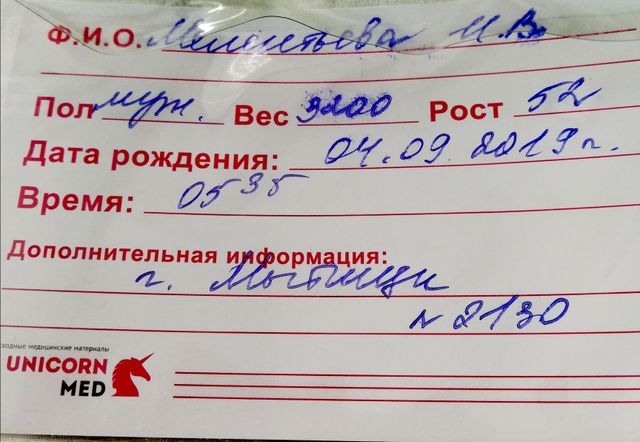 Ф.И.О. Мелентьева И.В.
Пол муж. Вес 3200 Рост 52
Дата рождения: 04.09.2019 г.
Время: 05 35
Дополнительная информация:
г. Мытищи
№ 2130
сходные медицинские материалы
UNICORN
MED